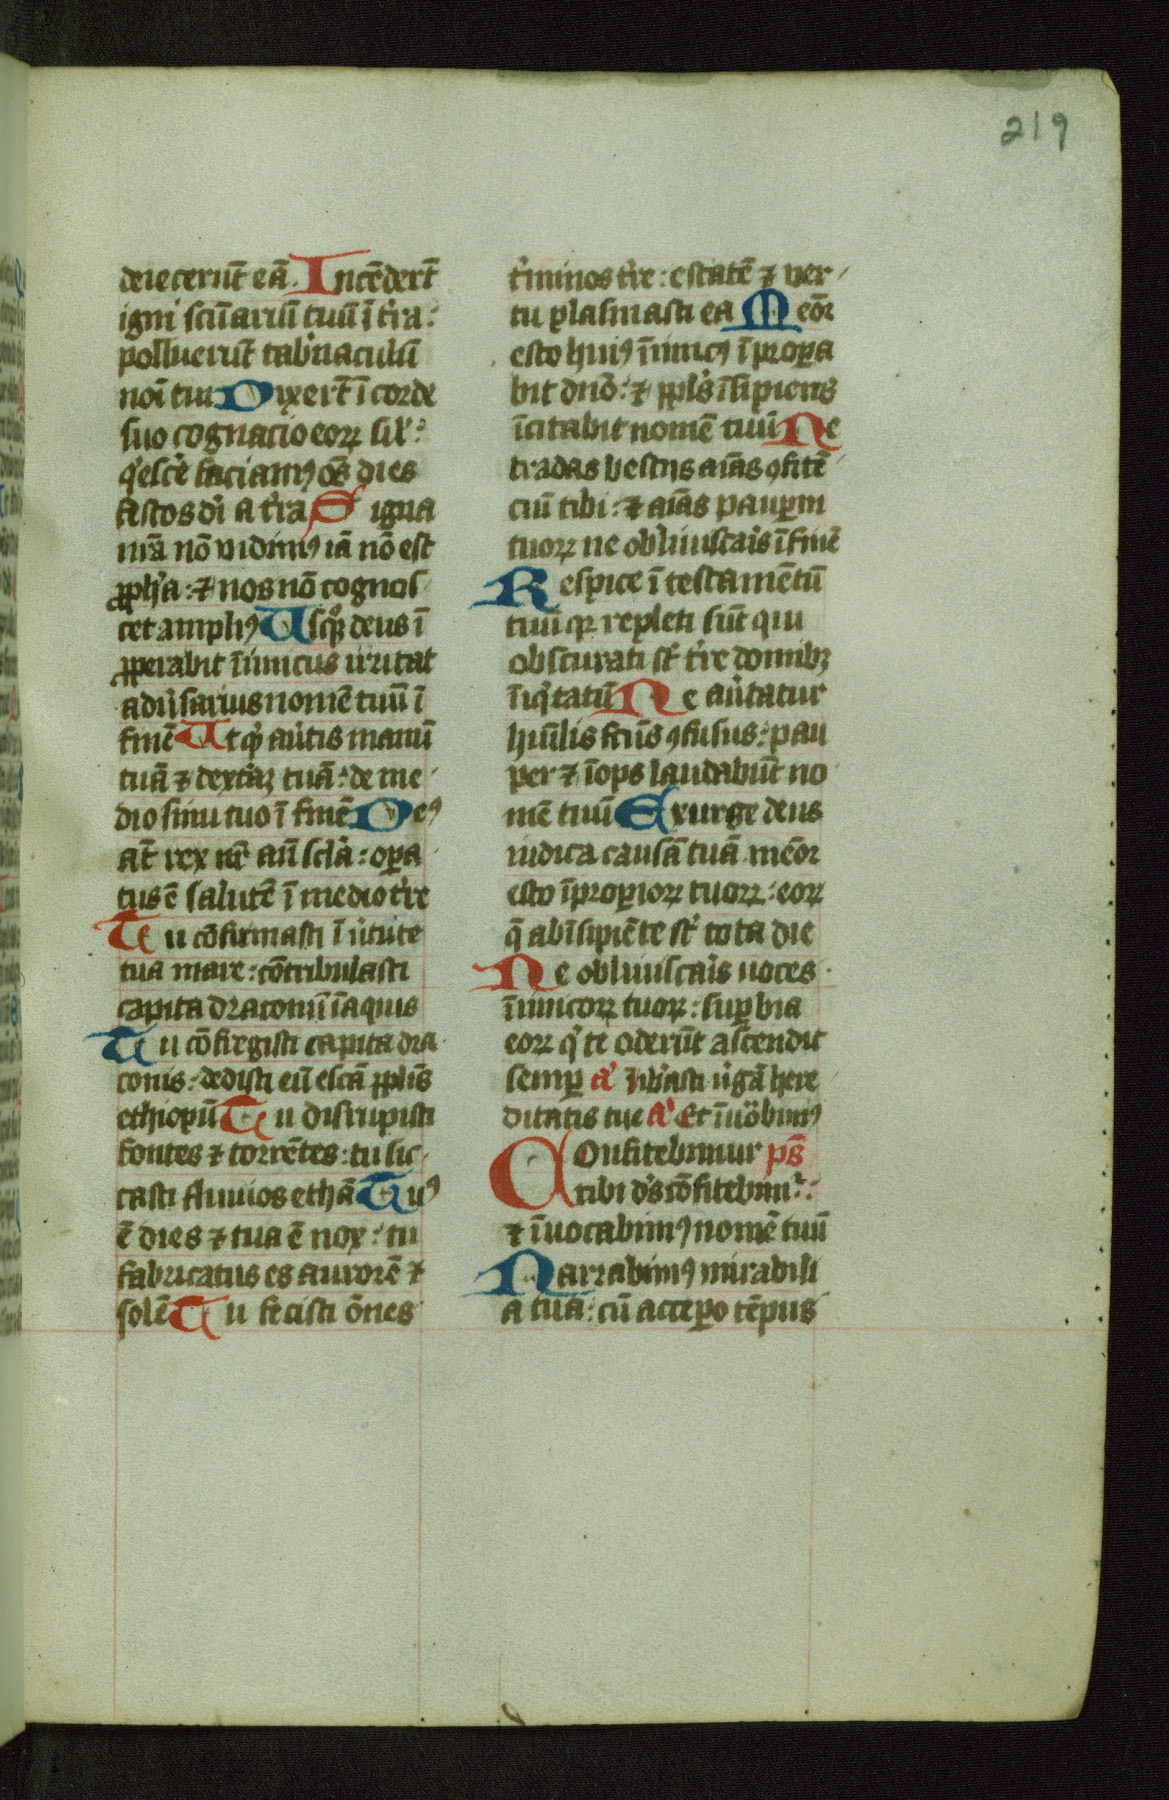 219
deiecerūt eā. Incēdert̄
igni sctūariū tuū ī t̓ra:
polluerūt tab̓naculū
noī tui Dixert̄ ī corde
suo cognacio eoꝝ sil̓:
q̓escē faciamꝰ oēs dies
festos dī a t̓ra Signa
nr̄a nō vidimꝰ iā nō est
ꝓph̓a: ⁊ nos nō cognos
cet ampliꝰ Usq̄ꝫ deus ī
ꝓperabit īimicus irritat
adūsarius nomē tuū ī
finē Ut qͥd aūtis manū
tuā ⁊ dextāꝫ tuā: de me
dio sinu tuo ī finē Deꝰ
at̄ rex nr̄ an̄ scl̓a: oꝑa
tus ē salutē ī medio t̓re
Tu cōfirmasti ī v̓tute
tua mare: cōtribulasti
capita draconū ī aquis
Tu cōfregisti capita dra
conis: dedisti eū escā ppl̓is
ethiopū Tu disrupisti
fontes ⁊ torrētes: tu sic
casti fluuios ethā Tuꝰ
ē dies ⁊ tua ē nox: tu
fabricatus es aurorē ⁊
solē Tu fecisti ōnes
t̓minos t̓re: estatē ⁊ ver
tu plasmasti ea Memōr
esto huiꝰ īimicꝰ īproꝑa
bit dnō: ⁊ ppl̓s īsipiens
īcitabit nomē tuū Ne
tradas bestiis aīas ꝯfitē
ciū tibi: ⁊ aīas pauꝑm
tuoꝝ ne obliuiscaīs ī finē
Respice ī testamētū
tuū qꝛ repleti sūt qui
obscurati st̄ t̓re domibꝫ
īiq̓tatū Ne aūtatur
huīlis fcūs ꝯfusus: pau
per ⁊ īops laudabūt no
mē tuū Exurge deus
iudica causā tuā. memōr
esto īproꝑioꝝ tuoꝝ: eoꝝ
q̄ ab īsipiēte st̄ tota die
Ne obliuiscaīs uoces
īimicoꝝ tuoꝝ: suꝑbia
eoꝝ q̓ te oderūt ascendit
semꝑ a̓ libasti v̓gā here
ditatis tue a̓ Et īuōbimꝰ
COnfitebimur ps̄
tibi d̓s cōfitebim᷑:
⁊ īuocabimꝰ nomē tuū
Narrabimꝰ mirabili
a tua: cū acceꝑo tēpus